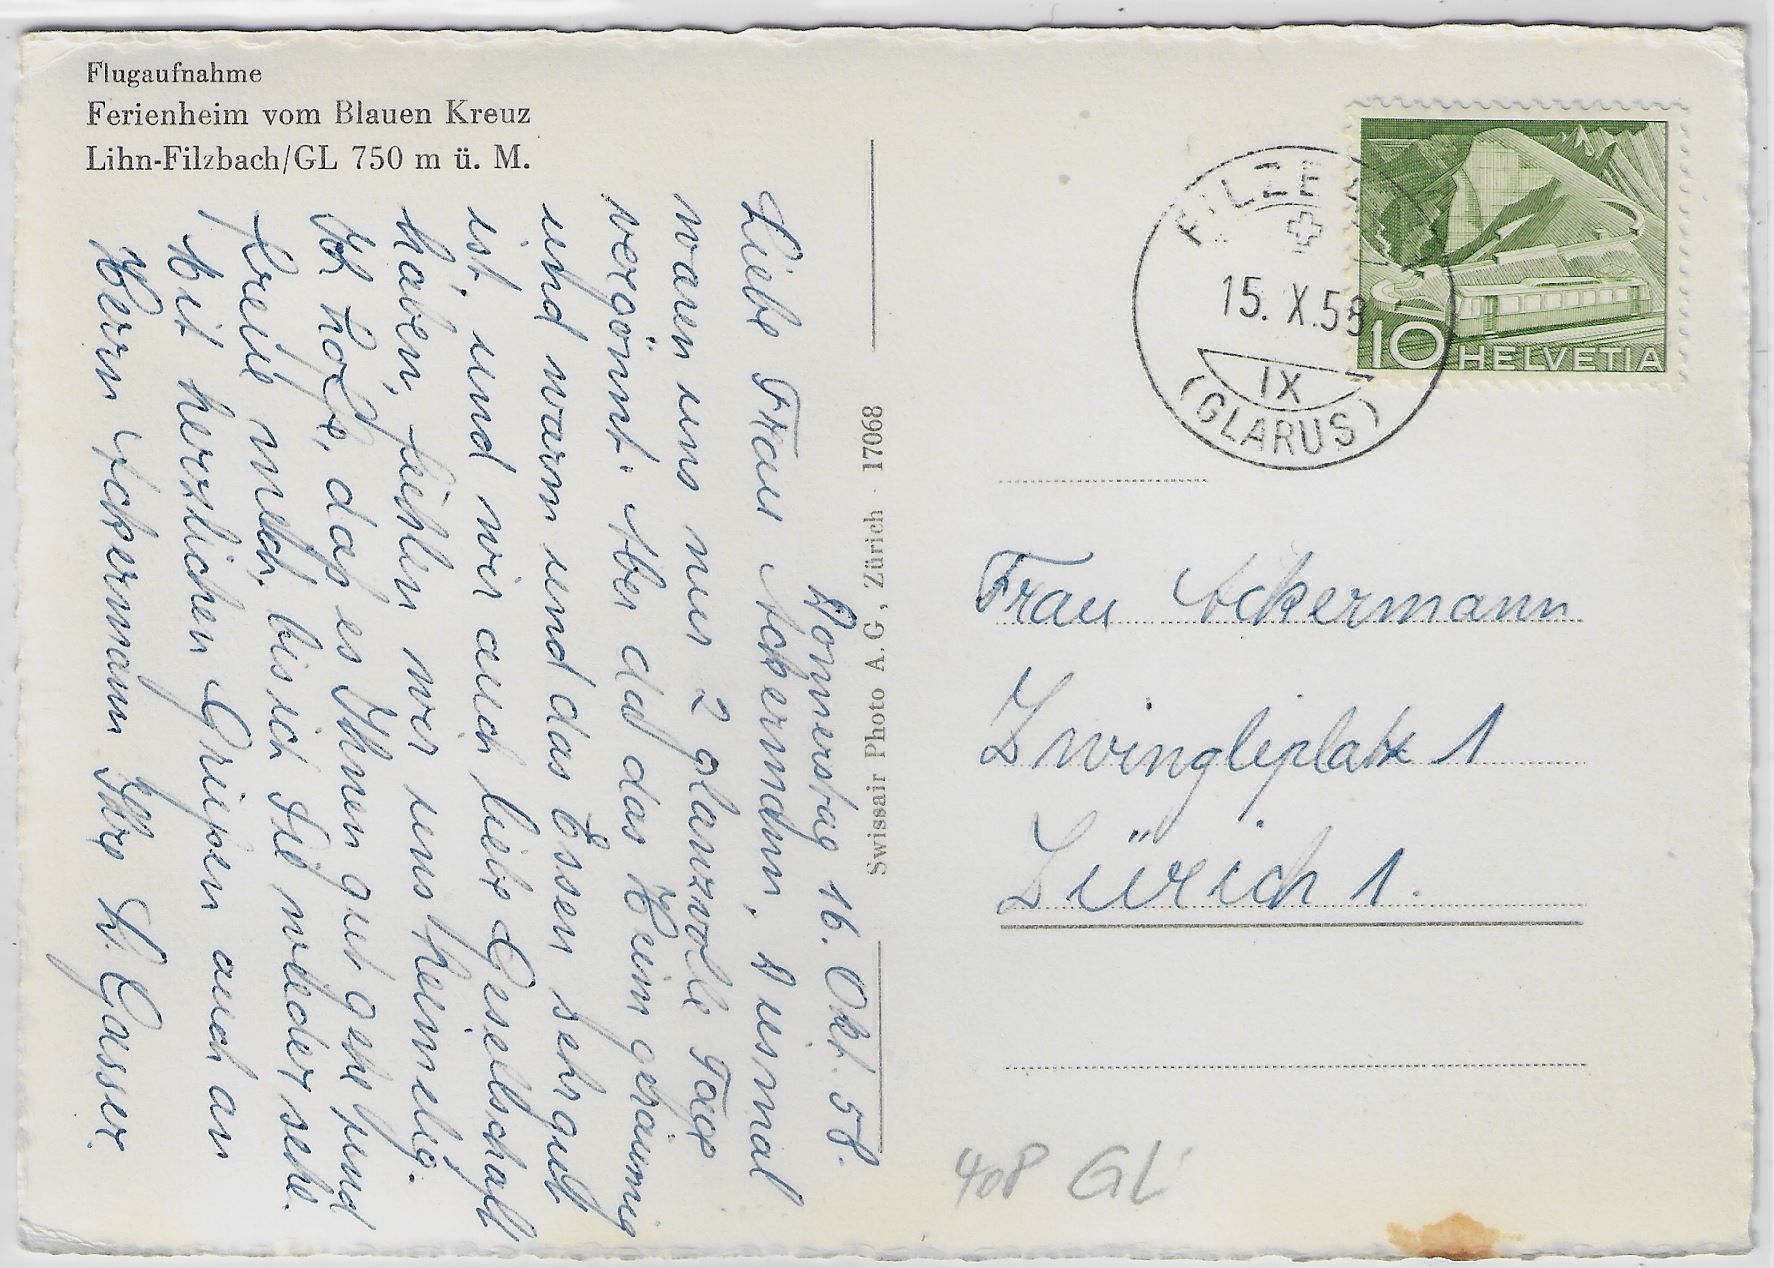 Flugaufnahme
Ferienheim vom Blauen Kreuz
Lihn-Filzbach/GL 750 m ü. M.
Donnerstag 16. Okt. 58.
Liebe Frau Ackermann, Diesmal
waren uns nur 2 glanzvolle Tage
vergönnt. Aber da das Heim geräumig
und warm und das Essen sehr gut
ist, und wir auch liebe Gesellschaft
haben, fühlen wir uns heimelig.
Ich hoffe, dass es Ihnen gut gehe und
freue mich, bis ich Sie wieder sehe.
Mit herzlichen Grüssen auch an
Herrn Ackermann Ihre L. Gasser.
Swissair Photo A. G., Zürich · 17068
15. X. 58
IX
(GLARUS)
10 HELVETIA
Frau Ackermann
Zwingliplatz 1
Zürich 1.
408 GL